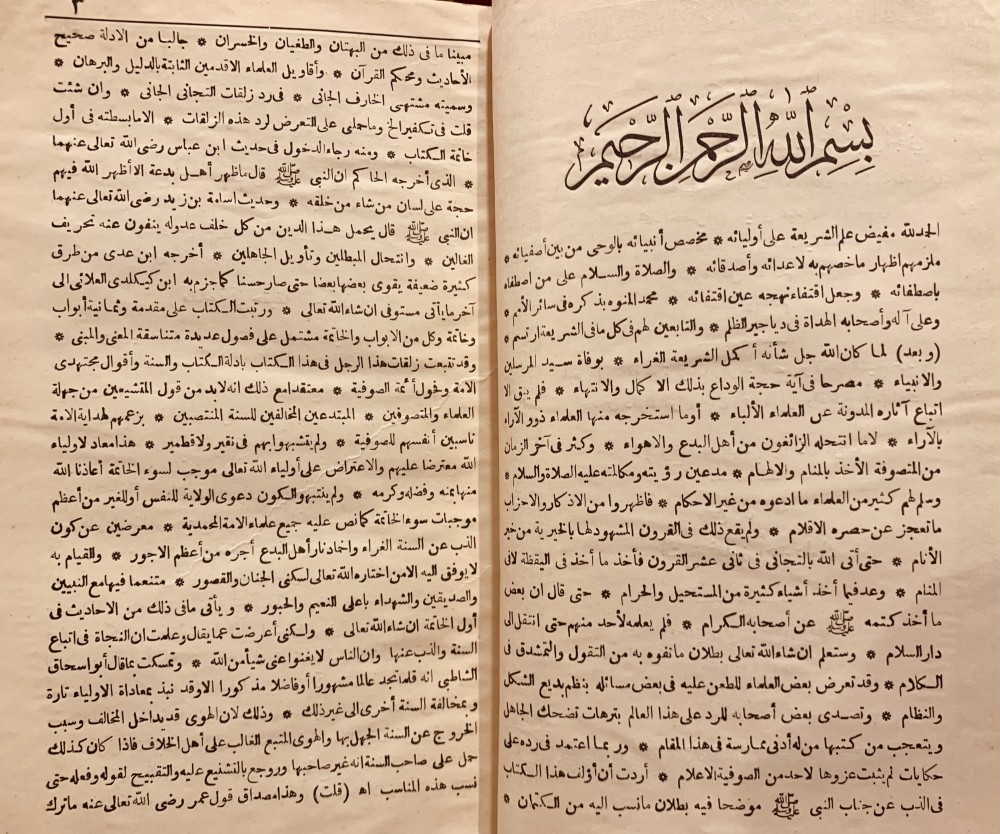 بسم الله الرحمن الرحيم
الحمد لله مفيض علم الشريعة على أوليائه * مخصص أنبيائه بالوحى من بين أصفيائه *
ملزمهم اظهار ما خصهم به لاعدائه وأصدقائه * والصلاة والسلام على من اصطفاه
باصطفائه * وجعل اقتفاء نهجه عين اقتفائه * محمد المنوه بذكره فى سائر الأمم *
وعلى آله وأصحابه الهداة فى دياجير الظلم * والتابعين لهم فى كل ما فى الشريعة ارتسم *
(وبعد) لما كان الله جل شأنه أكمل الشريعة الغراء * بوفاة سيد المرسلين
والانبياء * مصرحا فى آية حجة الوداع بذلك الاكمال والانتهاء * فلم يبق الا
اتباع آثاره المدونة عن العلماء الألباء * أوما استخرجه منها العلماء ذوو الآراء
بالآراء * لاما انتحله الزائغون من أهل البدع والاهواء * وكثر فى آخر الزمان
من المتصوفة الأخذ بالمنام والالهام * مدعين رؤيته ومكالمته عليه الصلاة والسلام *
وسلم لهم كثير من العلماء ما ادعوه من غير الاحكام * فاظهروا من الاذكار والاحزاب
ما تعجز عن حصره الاقلام * ولم يقع ذلك فى القرون المشهود لها بالخيرية من خير
الأنام * حتى أتى الله بالتجانى فى ثانى عشر القرون فأخذ ما أخذ فى اليقظة لافى
المنام * وعد فيما أخذ أشياء كثيرة من المستحيل والحرام * حتى قال ان بعض
ما أخذ كتمه ﷺ عن أصحابه الكرام * فلم يعلمه لأحد منهم حتى انتقل الى
دار السلام * وستعلم ان شاء الله تعالى بطلان ما تفوه به من التقول والتمشدق فى
الكلام * وقد تعرض بعض العلماء للطعن عليه فى بعض مسائله بنظم بديع الشكل
والنظام * وتصدى بعض أصحابه للرد على هذا العالم بترهات تضحك الجاهل
ويتعجب من كتبها من له أدنى ممارسة فى هذا المقام * وربما اعتمد فى رده على
حكايات لم يثبت عزوها لاحد من الصوفية الاعلام * أردت أن أؤلف هذا الكتاب
فى الذب عن جناب النبى ﷺ موضحا فيه بطلان ما نسب اليه من الكتمان *
٣
مبينا ما فى ذلك من البهتان والطغيان والخسران * جالبا من الادلة صحيح
الأحاديث ومحكم القرآن * وأقاويل العلماء الاقدمين الثابتة بالدليل والبرهان *
وسميته مشتهى الخارف الجانى * فى رد زلقات التجانى الجانى * وان شئت
قلت فى تكفير الخ وما حملنى على التعرض لرد هذه الزلقات * الا ما بسطته فى أول
خاتمة الكتاب * ومنه رجاء الدخول فى حديث ابن عباس رضى الله تعالى عنهما
* الذى أخرجه الحاكم ان النبى ﷺ قال ما ظهر أهل بدعة الا أظهر الله فيهم
حجة على لسان من شاء من خلقه * وحديث اسامة بن زيد رضى الله تعالى عنهما
ان النبى ﷺ قال يحمل هذا الدين من كل خلف عدوله ينفون عنه تحريف
الغالين * وانتحال المبطلين وتأويل الجاهلين * أخرجه ابن عدى من طرق
كثيرة ضعيفة يقوى بعضها بعضا حتى صار حسنا كما جزم به ابن كيكلدى العلائى الى
آخر ما يأتى مستوفى ان شاء الله تعالى * ورتبت الكتاب على مقدمة وثمانية أبواب
وخاتمة وكل من الابواب والخاتمة مشتمل على فصول عديدة متناسقة المعنى والمبنى *
وقد تتبعت زلقات هذا الرجل فى هذا الكتاب بادلة الكتاب والسنة وأقوال مجتهدى
الأمة وفحول أئمة الصوفية * معتقدا مع ذلك انه لا بد من قول المتشيعين من جهلة
العلماء والمتصوفين * المبتدعين المخالفين للسنة المنتصبين * بزعمهم لهداية الامة
ناسبين أنفسهم للصوفية * ولم يتشبهوا بهم فى نقير ولا قطمير * هذا معاد لاولياء
الله معترضا عليهم والاعتراض على أولياء الله تعالى موجب لسوء الخاتمة أعاذنا الله
منها بمنه وفضله وكرمه * ولم ينتبهوا لكون دعوى الولاية للنفس أو للغير من أعظم
موجبات سوء الخاتمة كما نص عليه جميع علماء الامة المحمدية * معرضين عن كون
الذب عن السنة الغراء واخماد نار أهل البدع أجره من أعظم الاجور * والقيام به
لا يوفق اليه الا من اختاره الله تعالى لسكنى الجنان والقصور * متنعما فيها مع النبيين
والصديقين والشهداء باعلى النعيم والحبور * ويأتى ما فى ذلك من الاحاديث فى
أول الخاتمة ان شاء الله تعالى * ولكنى أعرضت عما يقال وعلمت ان النجاة فى اتباع
السنة والذب عنها وان الناس لا يغنوا عنى شيأ من الله * وتمسكت بما قال أبو اسحاق
الشاطبى انه قلما تجد عالما مشهورا أو فاضلا مذكورا الا وقد نبذ بمعاداة الاولياء تارة
وبمخالفة السنة أخرى الى غير ذلك * وذلك لان الهوى قد يداخل المخالف وسبب
الخروج عن السنة الجهل بها والهوى المتبع الغالب على أهل الخلاف فاذا كان كذلك
حمل على صاحب السنة انه غير صاحبها وروجع بالتشنيع عليه والتقبيح لقوله وفعله حتى
نسب هذه المناسب اه (قلت) وهذا مصداق قول عمر رضى الله تعالى عنه ما ترك